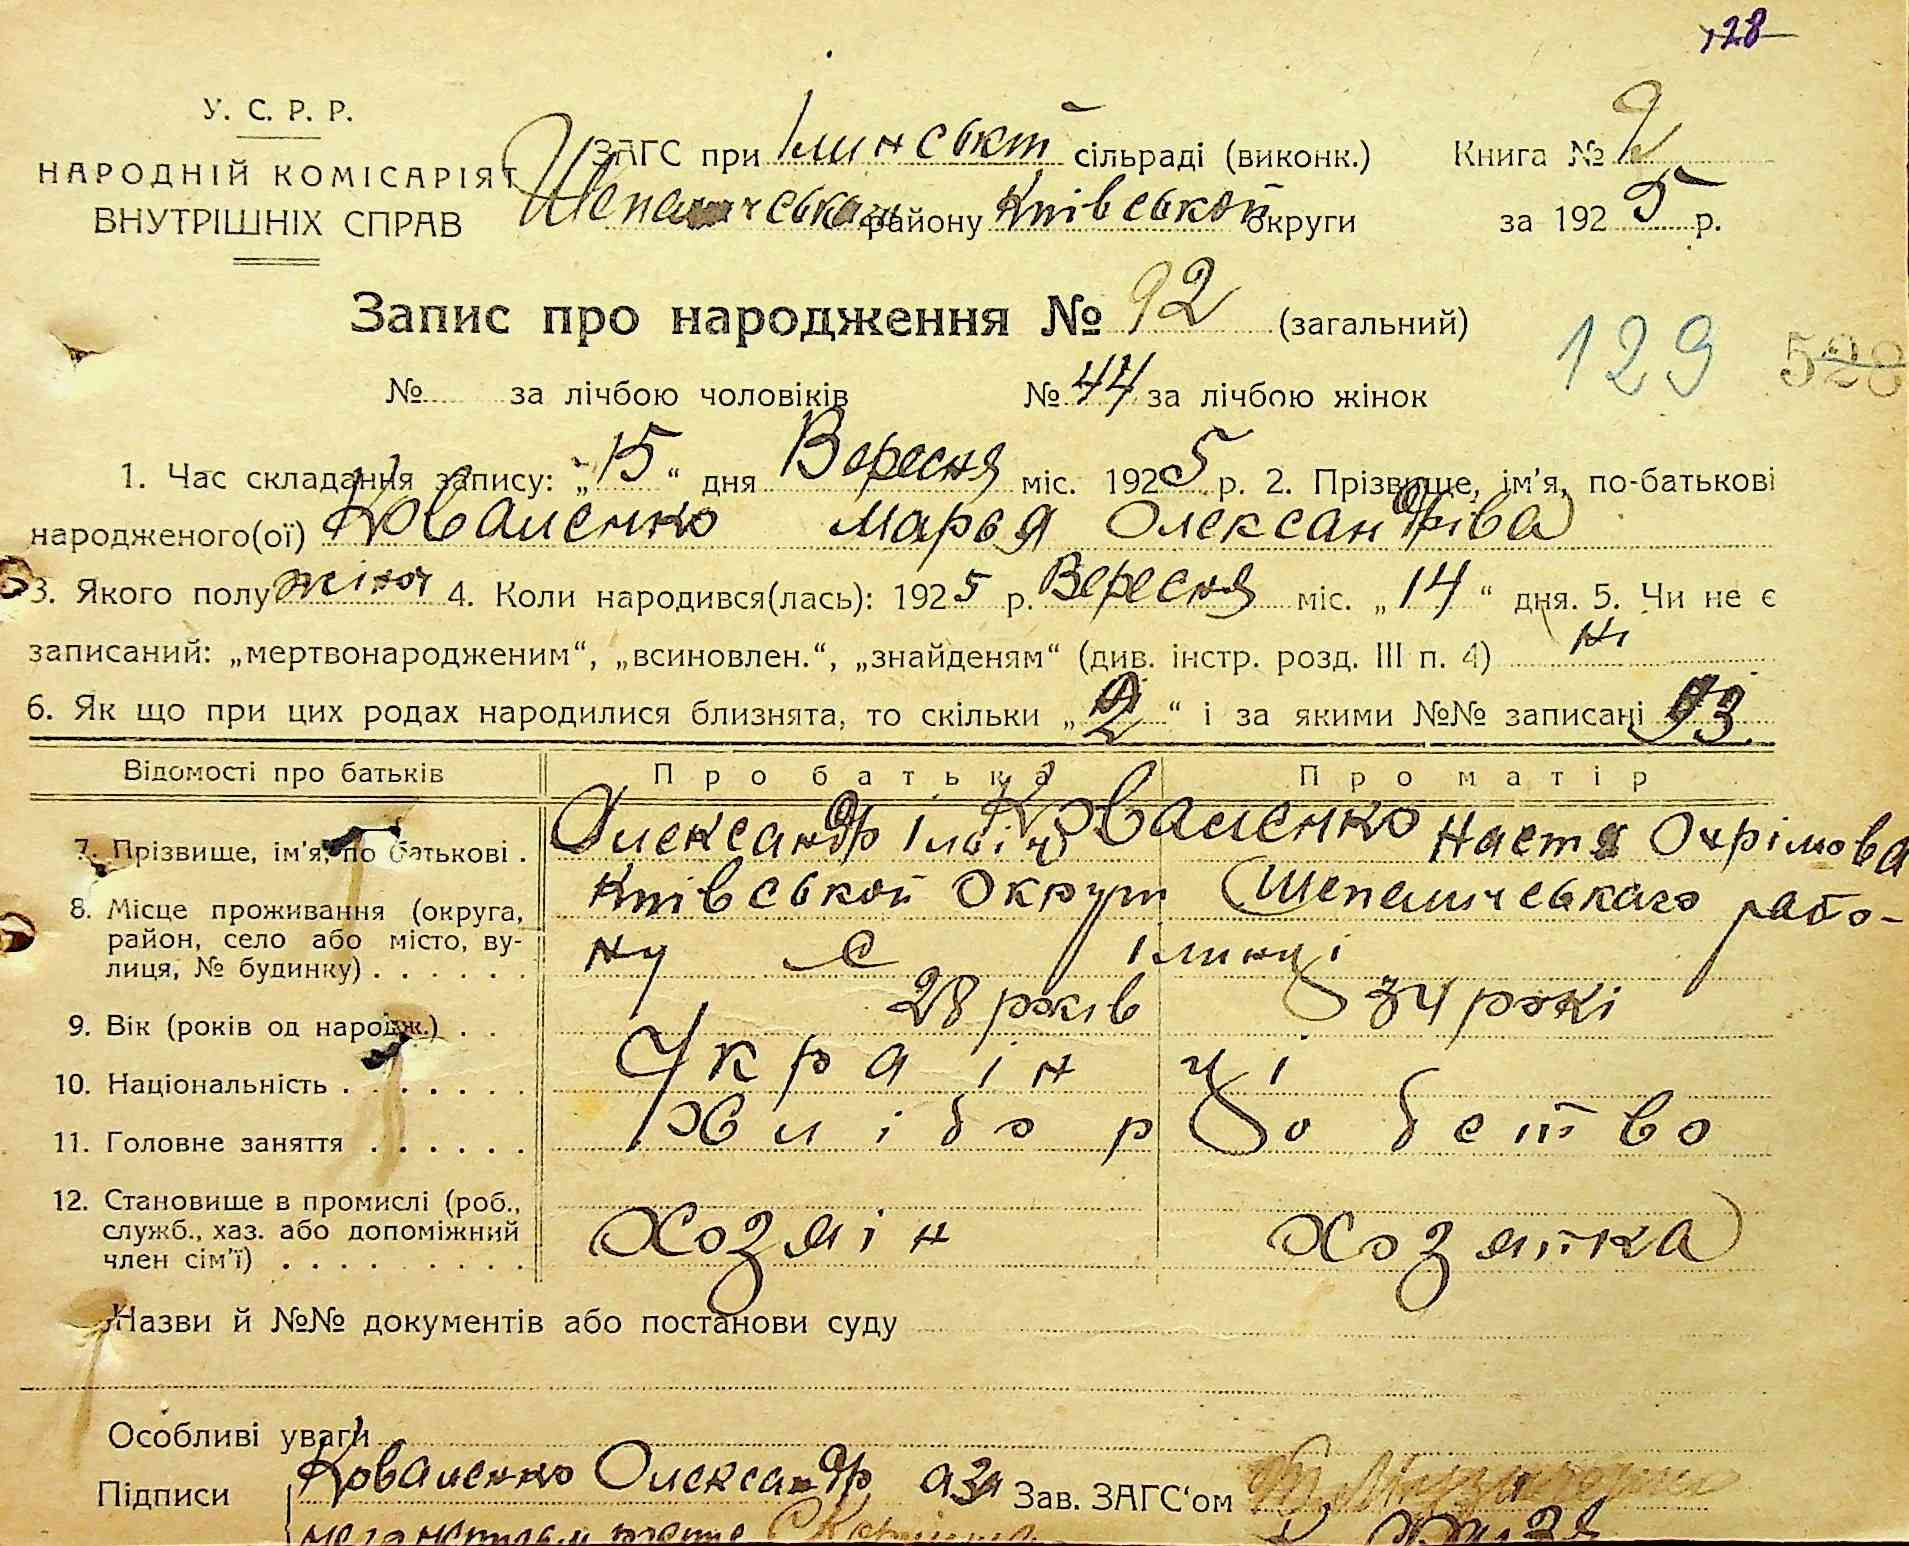 128
У. С. Р. Р.
НАРОДНІЙ КОМІСАРІЯТ
ВНУТРІШНІХ СПРАВ
ЗАГС при Ілинській сільраді (виконк.) Книга № 2
району Київськой округи за 1925 р.
Запис про народження № 92 (загальний)
129 528
№ за лічбою чоловіків № 44 за лічбою жінок
1. Час складання запису: „15“ дня Вересня міс. 1925 р. 2. Прізвище, ім'я, по-батькові
народженого(ої) Коваленко Марья Олександріва
3. Якого полу жіноч 4. Коли народився(лась): 1925 р. Вересня міс. „14“ дня. 5. Чи не є
записаний: „мертвонародженим“, „всиновлен.“, „знайденям“ (див. інстр. розд. III п. 4) Ні
6. Як що при цих родах народилися близнята, то скільки „2“ і за якими №№ записані 93.
Відомості про батьків Про батька Про матір
7. Прізвище, ім'я, по батькові . Олександр Ільіч Коваленко Настя Охрімова
8. Місце проживання (округа, район, село або місто, вулиця, № будинку) . . . . . . Київськой Округи Шепелическаго райо-
ну с Ілинці
9. Вік (років од народж.) . . 28 років 34 рокі
10. Національність . . . . . . . Українці
11. Головне заняття . . . . . . Хліборобство
12. Становище в промислі (роб., служб., хаз. або допоміжний член сім'ї) . . . . . . . . . Хозяін Хозяйка
Назви й №№ документів або постанови суду
Особливі уваги
Підписи Коваленко Олександр аза Зав. ЗАГС'ом